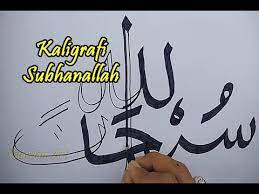 Kaligrafi
Subhanallah
سُبحان الله